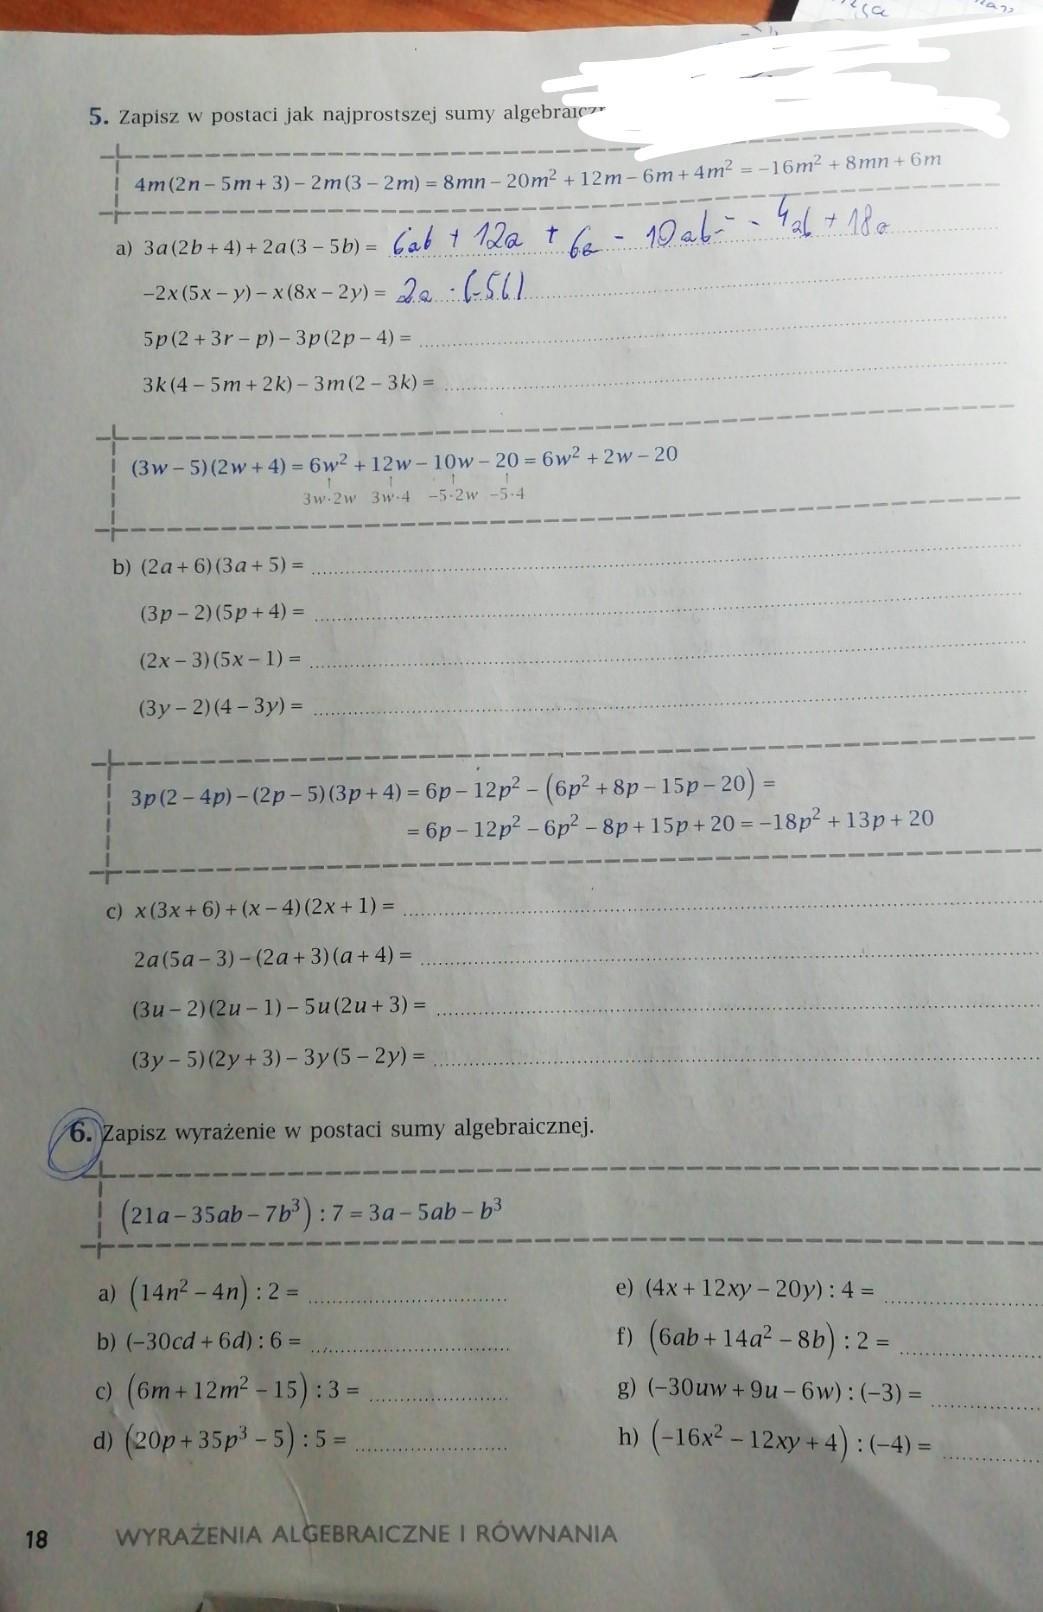 5. Zapisz w postaci jak najprostszej sumy
4m(2n − 5m + 3) − 2m(3 − 2m) = 8mn − 20m² + 12m − 6m + 4m² = −16m² + 8mn + 6m
a) 3a(2b + 4) + 2a(3 − 5b) = 6ab + 12a + 6a − 10ab = − 4ab + 18a
−2x(5x − y) − x(8x − 2y) = 2a · (−5b)
5p(2 + 3r − p) − 3p(2p − 4) =
3k(4 − 5m + 2k) − 3m(2 − 3k) =
(3w − 5)(2w + 4) = 6w² + 12w − 10w − 20 = 6w² + 2w − 20
↑ ↑ ↑ ↑
3w·2w 3w·4 −5·2w −5·4
b) (2a + 6)(3a + 5) =
(3p − 2)(5p + 4) =
(2x − 3)(5x − 1) =
(3y − 2)(4 − 3y) =
3p(2 − 4p) − (2p − 5)(3p + 4) = 6p − 12p² − (6p² + 8p − 15p − 20) =
= 6p − 12p² − 6p² − 8p + 15p + 20 = −18p² + 13p + 20
c) x(3x + 6) + (x − 4)(2x + 1) =
2a(5a − 3) − (2a + 3)(a + 4) =
(3u − 2)(2u − 1) − 5u(2u + 3) =
(3y − 5)(2y + 3) − 3y(5 − 2y) =
6. Zapisz wyrażenie w postaci sumy algebraicznej.
(21a − 35ab − 7b³) : 7 = 3a − 5ab − b³
a) (14n² − 4n) : 2 =
b) (−30cd + 6d) : 6 =
c) (6m + 12m² − 15) : 3 =
d) (20p + 35p³ − 5) : 5 =
e) (4x + 12xy − 20y) : 4 =
f) (6ab + 14a² − 8b) : 2 =
g) (−30uw + 9u − 6w) : (−3) =
h) (−16x² − 12xy + 4) : (−4) =
18 WYRAŻENIA ALGEBRAICZNE I RÓWNANIA